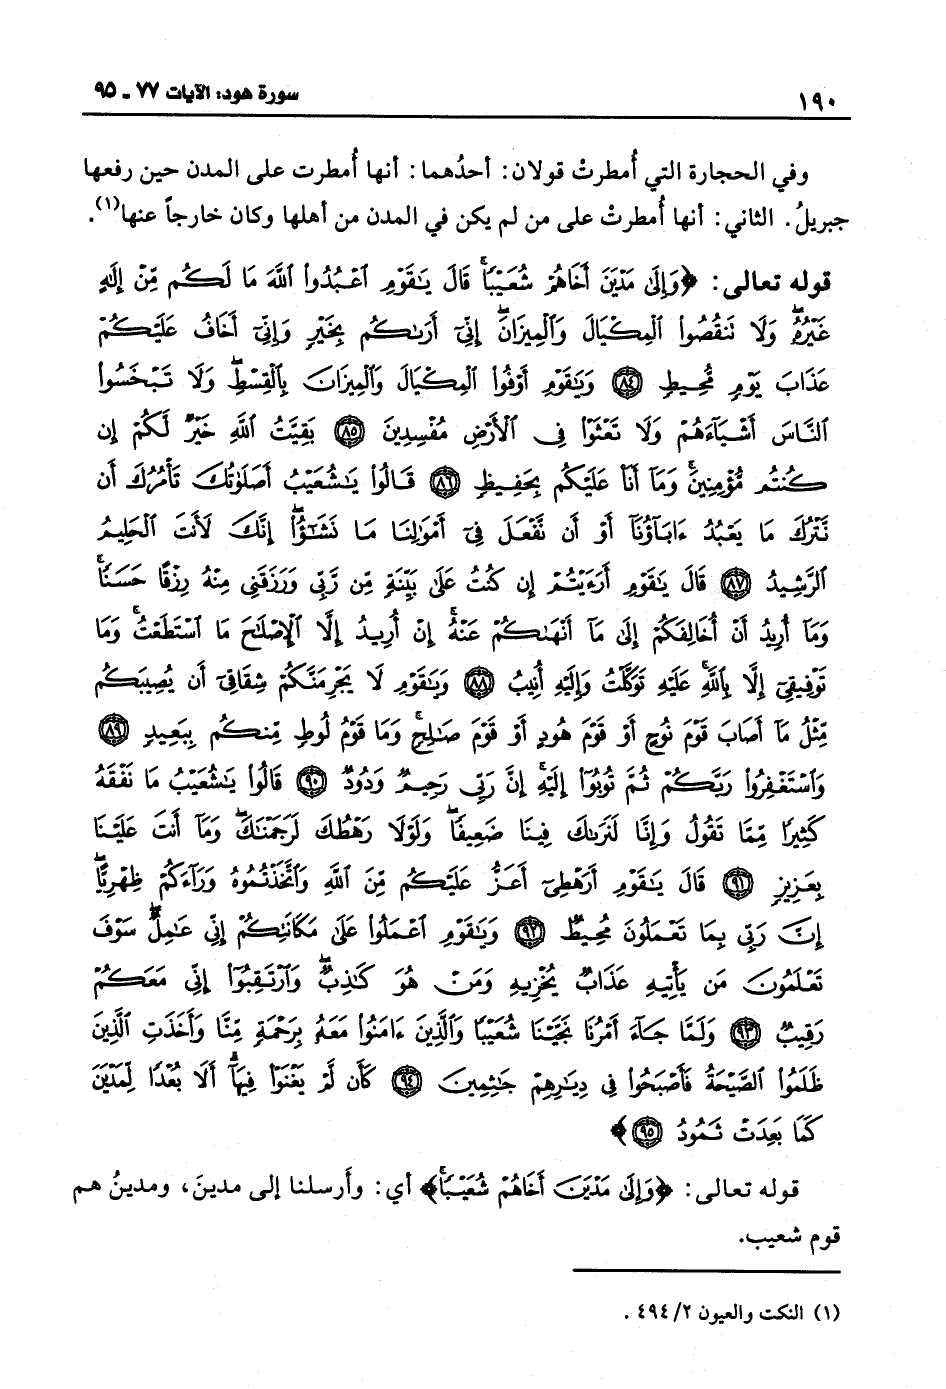 ١٩٠ سورة هود: الآيات ٧٧ ـ ٩٥
وفي الحجارة التي أُمطرتْ قولان: أحدُهما: أنها أُمطرت على المدن حين رفعها
جبريلُ. الثاني: أنها أُمطرتْ على من لم يكن في المدن من أهلها وكان خارجاً عنها(١).
قوله تعالى: ﴿وَإِلَىٰ مَدْيَنَ أَخَاهُمْ شُعَيْبًا ۚ قَالَ يَٰقَوْمِ ٱعْبُدُوا۟ ٱللَّهَ مَا لَكُم مِّنْ إِلَٰهٍ
غَيْرُهُۥ ۖ وَلَا تَنقُصُوا۟ ٱلْمِكْيَالَ وَٱلْمِيزَانَ ۖ إِنِّىٓ أَرَىٰكُم بِخَيْرٍ وَإِنِّىٓ أَخَافُ عَلَيْكُمْ
عَذَابَ يَوْمٍ مُّحِيطٍ ﴿٨٤﴾ وَيَٰقَوْمِ أَوْفُوا۟ ٱلْمِكْيَالَ وَٱلْمِيزَانَ بِٱلْقِسْطِ ۖ وَلَا تَبْخَسُوا۟
ٱلنَّاسَ أَشْيَآءَهُمْ وَلَا تَعْثَوْا۟ فِى ٱلْأَرْضِ مُفْسِدِينَ ﴿٨٥﴾ بَقِيَّتُ ٱللَّهِ خَيْرٌ لَّكُمْ إِن
كُنتُم مُّؤْمِنِينَ ۚ وَمَآ أَنَا۠ عَلَيْكُم بِحَفِيظٍ ﴿٨٦﴾ قَالُوا۟ يَٰشُعَيْبُ أَصَلَوٰتُكَ تَأْمُرُكَ أَن
نَّتْرُكَ مَا يَعْبُدُ ءَابَآؤُنَآ أَوْ أَن نَّفْعَلَ فِىٓ أَمْوَٰلِنَا مَا نَشَٰٓؤُا۟ ۖ إِنَّكَ لَأَنتَ ٱلْحَلِيمُ
ٱلرَّشِيدُ ﴿٨٧﴾ قَالَ يَٰقَوْمِ أَرَءَيْتُمْ إِن كُنتُ عَلَىٰ بَيِّنَةٍ مِّن رَّبِّى وَرَزَقَنِى مِنْهُ رِزْقًا حَسَنًا ۚ
وَمَآ أُرِيدُ أَنْ أُخَالِفَكُمْ إِلَىٰ مَآ أَنْهَىٰكُمْ عَنْهُ ۚ إِنْ أُرِيدُ إِلَّا ٱلْإِصْلَٰحَ مَا ٱسْتَطَعْتُ ۚ وَمَا
تَوْفِيقِىٓ إِلَّا بِٱللَّهِ ۚ عَلَيْهِ تَوَكَّلْتُ وَإِلَيْهِ أُنِيبُ ﴿٨٨﴾ وَيَٰقَوْمِ لَا يَجْرِمَنَّكُمْ شِقَاقِىٓ أَن يُصِيبَكُم
مِّثْلُ مَآ أَصَابَ قَوْمَ نُوحٍ أَوْ قَوْمَ هُودٍ أَوْ قَوْمَ صَٰلِحٍ ۚ وَمَا قَوْمُ لُوطٍ مِّنكُم بِبَعِيدٍ ﴿٨٩﴾
وَٱسْتَغْفِرُوا۟ رَبَّكُمْ ثُمَّ تُوبُوٓا۟ إِلَيْهِ ۚ إِنَّ رَبِّى رَحِيمٌ وَدُودٌ ﴿٩٠﴾ قَالُوا۟ يَٰشُعَيْبُ مَا نَفْقَهُ
كَثِيرًا مِّمَّا تَقُولُ وَإِنَّا لَنَرَىٰكَ فِينَا ضَعِيفًا ۖ وَلَوْلَا رَهْطُكَ لَرَجَمْنَٰكَ ۖ وَمَآ أَنتَ عَلَيْنَا
بِعَزِيزٍ ﴿٩١﴾ قَالَ يَٰقَوْمِ أَرَهْطِىٓ أَعَزُّ عَلَيْكُم مِّنَ ٱللَّهِ وَٱتَّخَذْتُمُوهُ وَرَآءَكُمْ ظِهْرِيًّا ۖ
إِنَّ رَبِّى بِمَا تَعْمَلُونَ مُحِيطٌ ﴿٩٢﴾ وَيَٰقَوْمِ ٱعْمَلُوا۟ عَلَىٰ مَكَانَتِكُمْ إِنِّى عَٰمِلٌ ۖ سَوْفَ
تَعْلَمُونَ مَن يَأْتِيهِ عَذَابٌ يُخْزِيهِ وَمَنْ هُوَ كَٰذِبٌ ۖ وَٱرْتَقِبُوٓا۟ إِنِّى مَعَكُمْ
رَقِيبٌ ﴿٩٣﴾ وَلَمَّا جَآءَ أَمْرُنَا نَجَّيْنَا شُعَيْبًا وَٱلَّذِينَ ءَامَنُوا۟ مَعَهُۥ بِرَحْمَةٍ مِّنَّا وَأَخَذَتِ ٱلَّذِينَ
ظَلَمُوا۟ ٱلصَّيْحَةُ فَأَصْبَحُوا۟ فِى دِيَٰرِهِمْ جَٰثِمِينَ ﴿٩٤﴾ كَأَن لَّمْ يَغْنَوْا۟ فِيهَآ ۗ أَلَا بُعْدًا لِّمَدْيَنَ
كَمَا بَعِدَتْ ثَمُودُ ﴿٩٥﴾﴾
قوله تعالى: ﴿وَإِلَىٰ مَدْيَنَ أَخَاهُمْ شُعَيْبًا ۚ﴾ أي: وأرسلنا إلى مدينَ، ومدينُ هم
قوم شعيب.
(١) النكت والعيون ٢/ ٤٩٤.